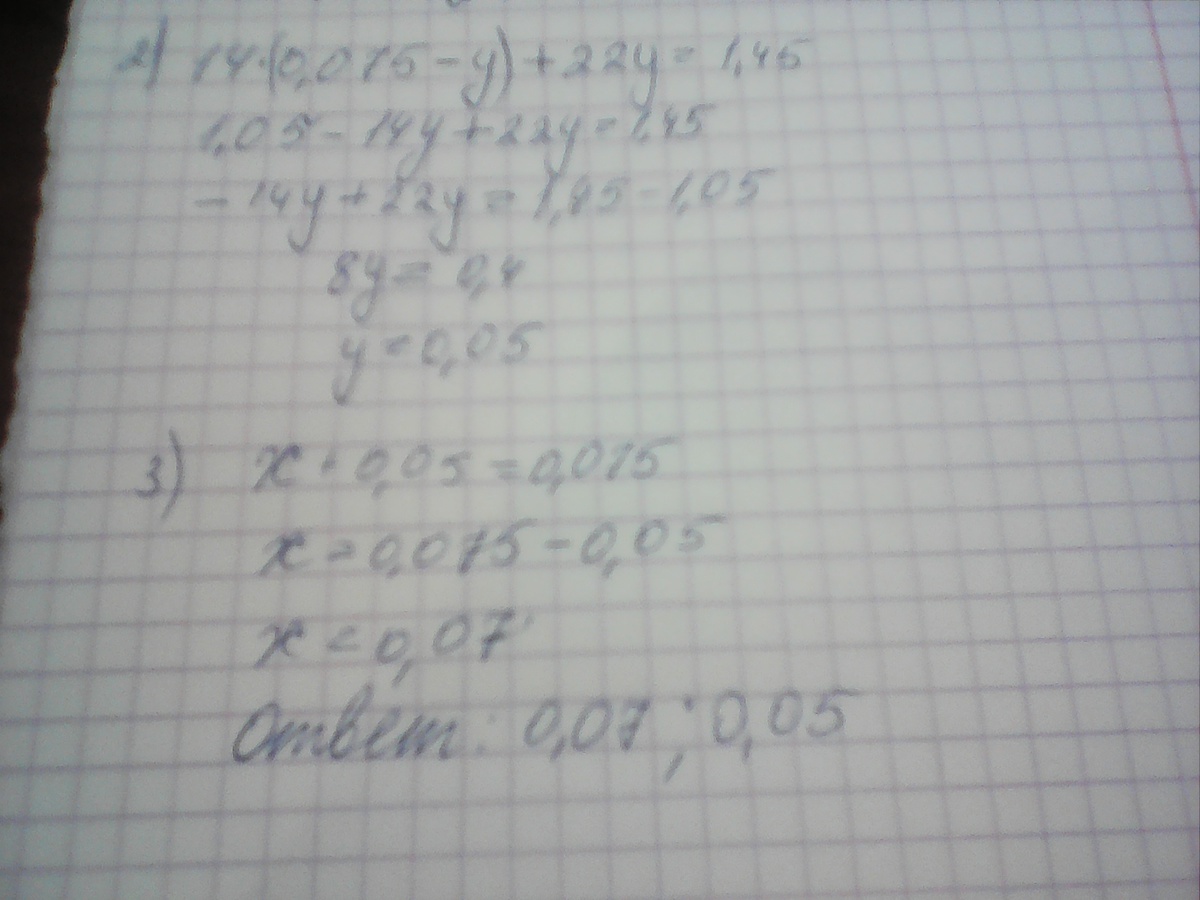 2) 14·(0,075-y)+22y=1,45
1,05-14y+22y=1,45
-14y+22y=1,45-1,05
8y=0,4
y=0,05
3) x+0,05=0,075
x=0,075-0,05
x=0,07
Ответ: 0,07; 0,05